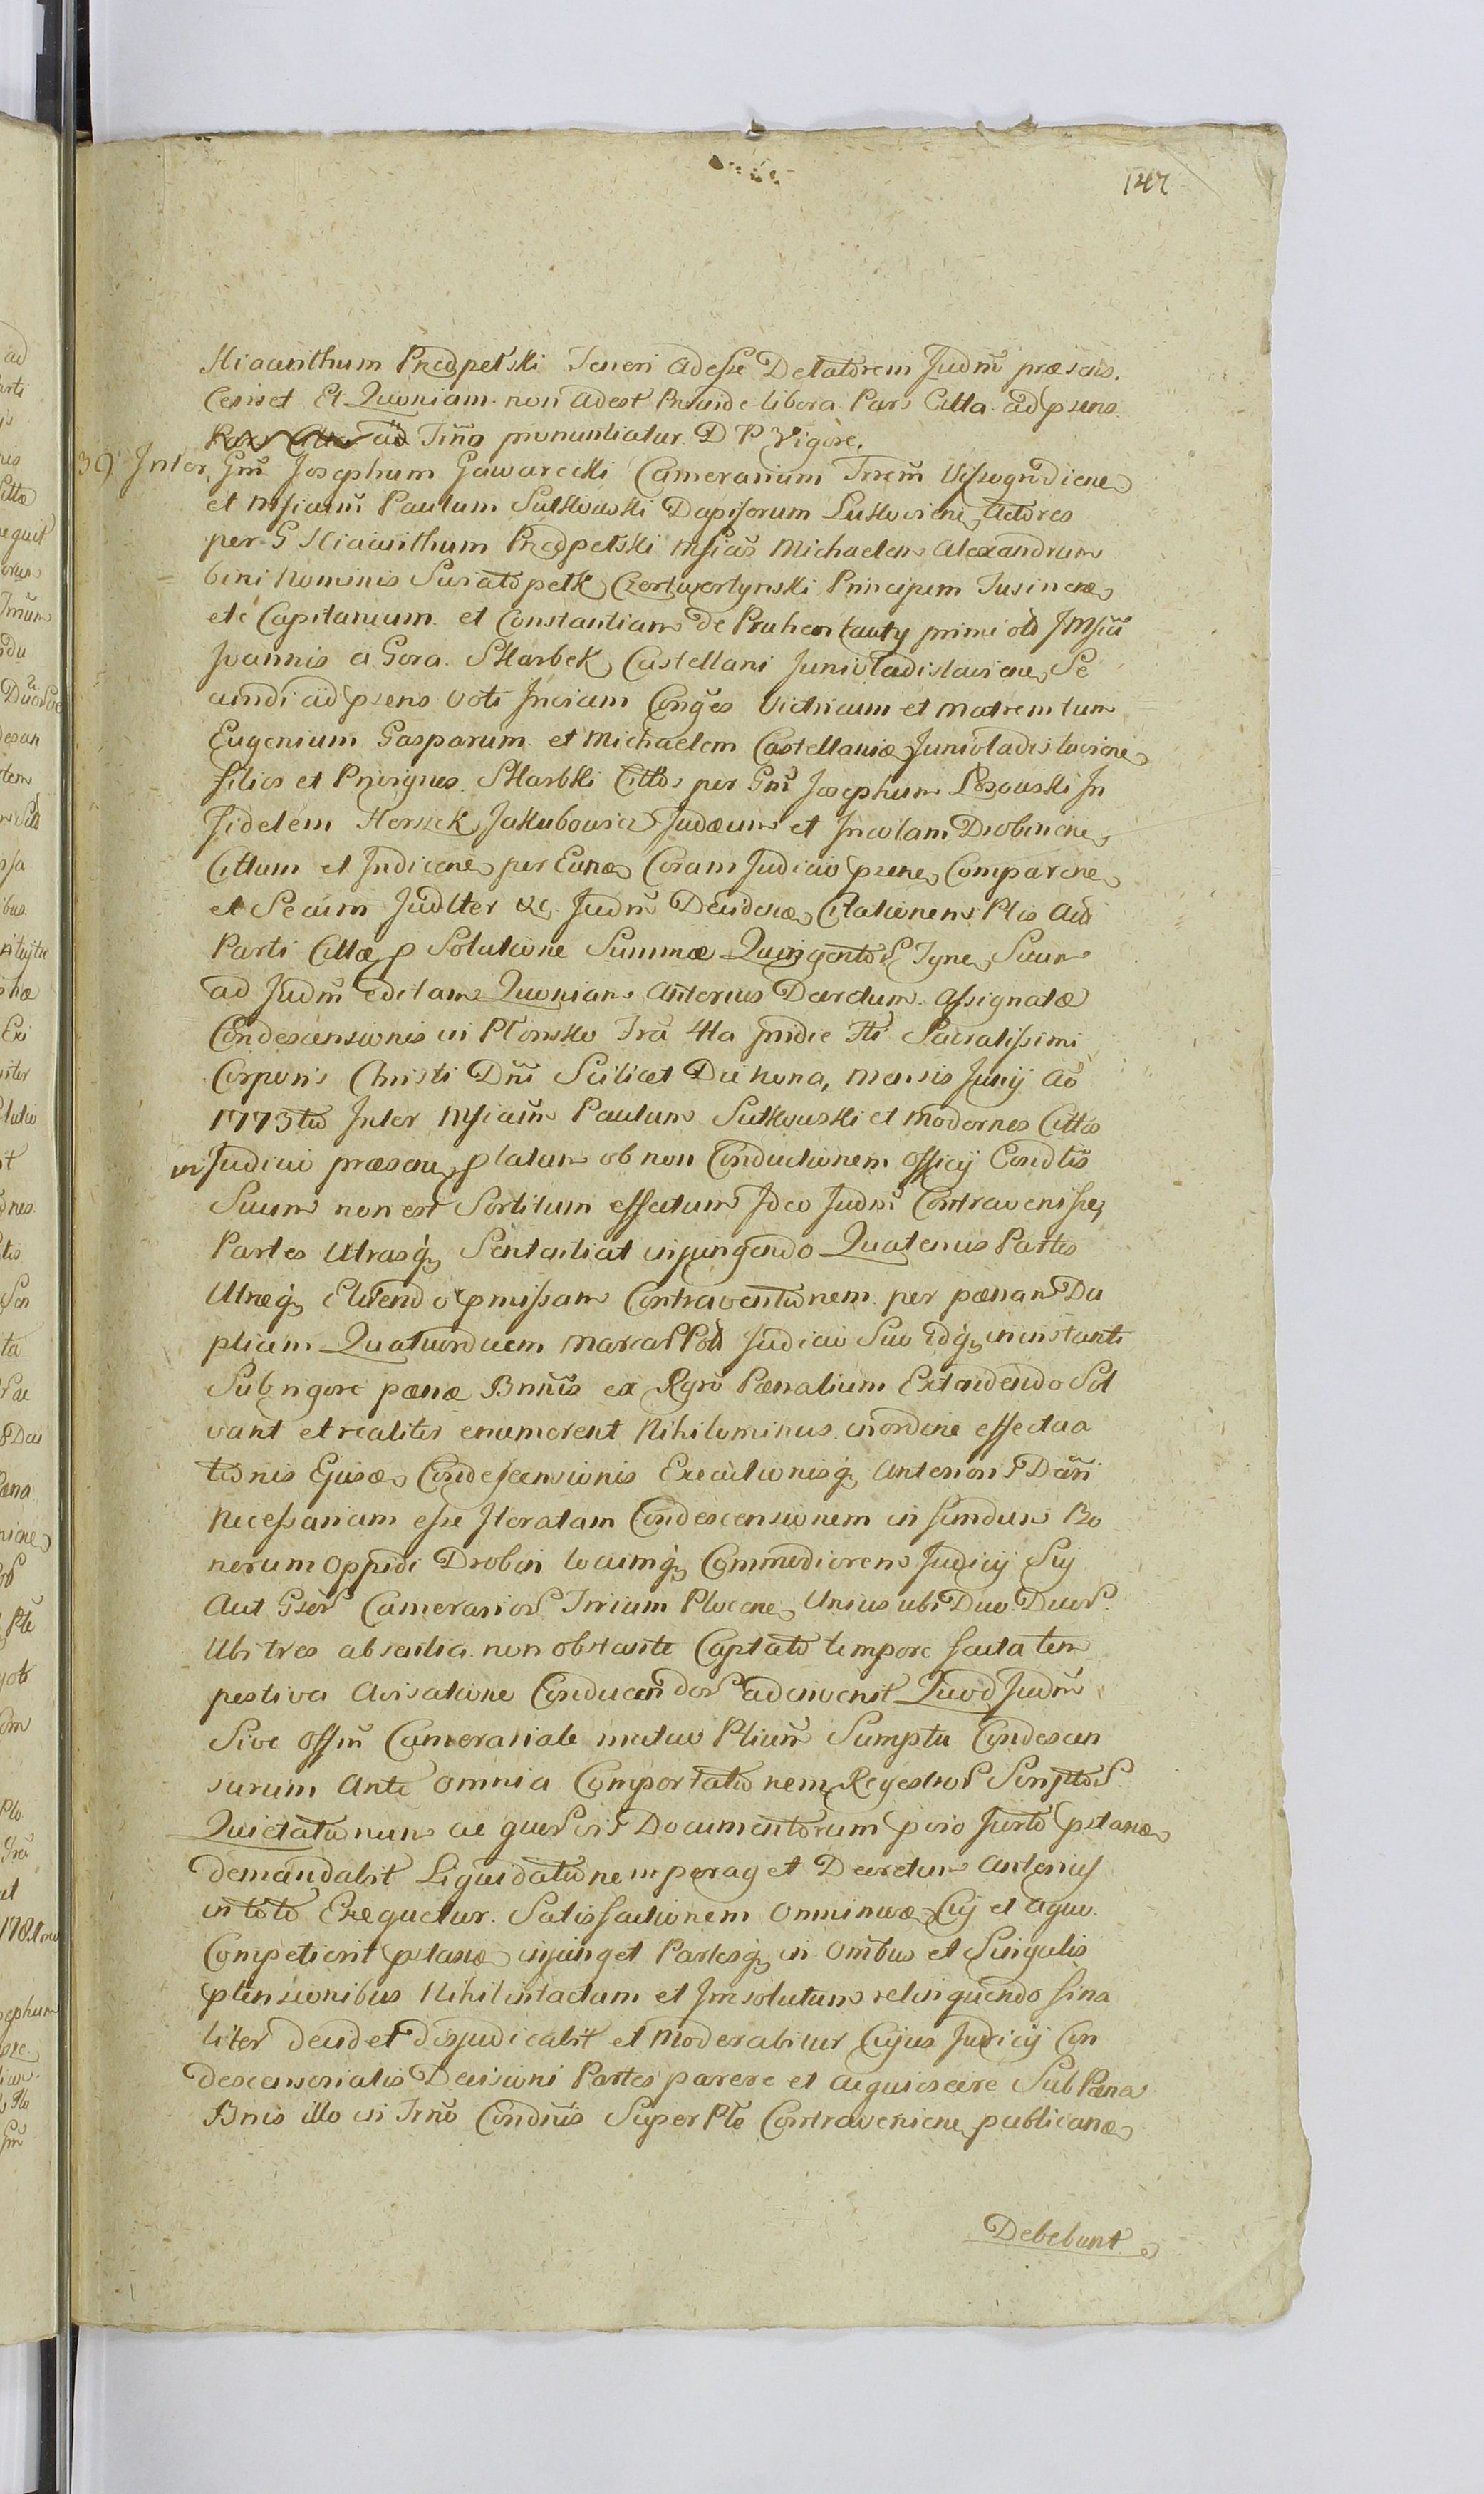 147
Hiacinthum Predpetski Teneri adesse Delatorem Judm præsens.
Censet Et Quoniam non adest Proinde libera Pars Citta ad psens
ad Tmno pronuntiatur D P Vigore.
39 Inter Gm Josephum Gawarecki Camerarium Trrem Vyssogrodiene
et Mficum Paulum Sutkowski Dapiferum Lukoviene Actores
per G Hiacinthum Predpetski Mficos Michaelem Alexandrum
bini Nominis Swiatopelk Czertwertynski Principem Tusinene
etc Capitaneum et Constantiam de primi olb JMfici
Joannis a Gora Skarbek Castellani Juniwladislaviene Se
cundi ad psens voti Inciam Conges Victricum et Matrem tum
Eugenium Gasparum et Michaelem Castellaniæ Juniwladislaviene
filios et Privignos Skarbki Cittos per Gm Josephum In
fidelem Herszek Jakubowicz Judæum et Incolam Drobinene
Cittum et Indicene per Eune Coram Judicio psene Comparene
et Secum Judlter &c. Judm Decidene Citationem Ptis
Parti Cittæ p Solutione Summæ Quingentor Tyne Suum
ad Judm editam Quoniam Anterius Decretum assignatæ
Condescensionis in Plonsko Fra 4ta pridie Fti Sacratissimi
Corporis Christi Dni Scilicet Die Nona, Mensis Junij Ao
1773tio Inter Mficum Paulum Sutkowski et Modernos Cittos
in Judicio præsene platum ob non Conductionem Officij Condtis
Suum non est Sortitum effectum Ideo Judm Contravenisse
Partes Utrasq Sententiat injungendo Quatenus Partes
Utræq Eluendo pmissam Contraventionem per pænam Du
plicem Quatuordecem Marcar Pol Judicio Suo idq in instanti
Sub rigore pænæ Bnnis ex Rgro Pænalium Extendendo Sol
vant et realiter enumerent Nihilominus in ordine effectua
tionis Ejusde Condescensionis Executionisq Anterioris Dcti
Necessariam esse Iteratam Condescensionem in fundum Bo
norum Oppidi Drobin locumq Commodiorem Judicij Sui
Aut Gsor Camerarior Trrium Plocene Unius ubi Duo Duor
Ubi tres absentia non obstante Captato tempore facta tem
pestiva Avisatione Conducendor adinvenit Quod Judm
Sive Offm Camerariale mutuo Ptium Sumptu Condescen
surum Ante omnia Comportationem Regestror Scriptor
Quietationum ac quorvis Documentorum pvio Jurto pstane
demandabit Liquidationem peraget Decretum Anterius
in toto Exequetur Satisfactionem Omnimode Cuj et a quo
Competierit pstane injunget Partesq in Omnibus et Singulis
ptensionibus Nihil intactum et Irresolutum relinquendo fina
liter decidet disjudicabit et Moderabitur Cujus Judicij Con
descensorialis Decisioni Partes parere et acquiescere Sub Pæna
Bnis illo in Trno Condnis Super Pte Contraveniene publicane
Debebunt